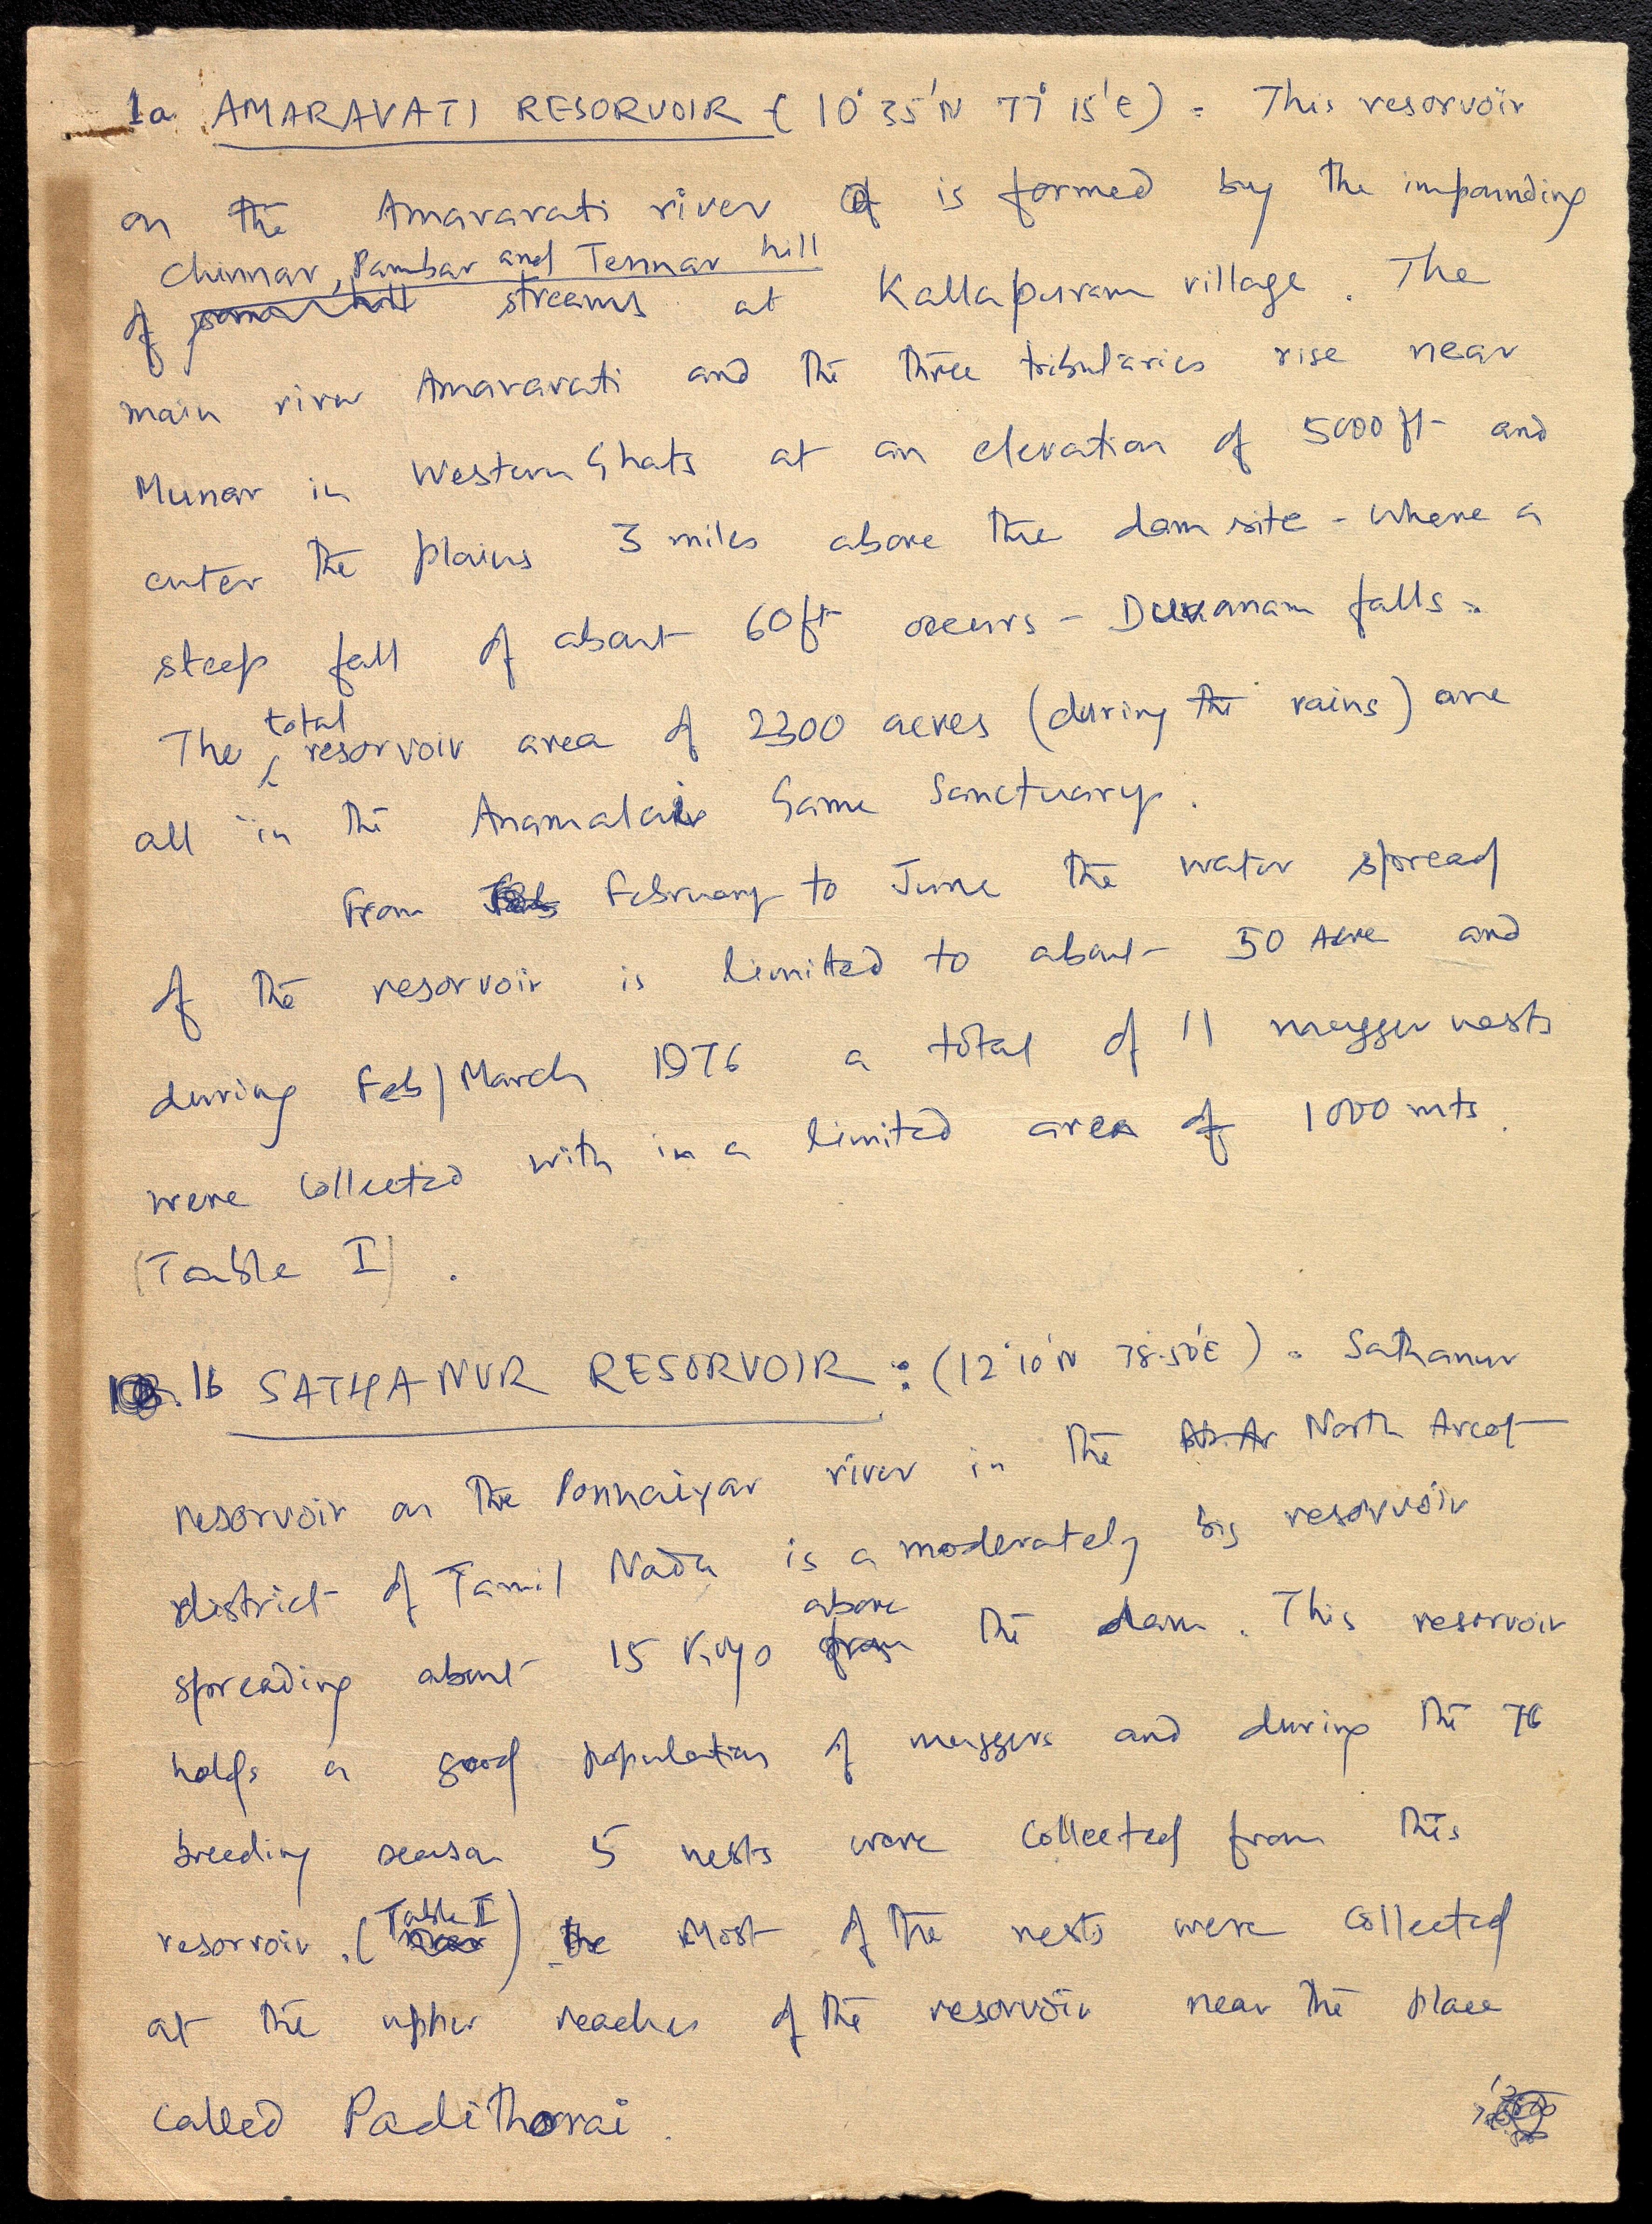 1a AMARAVATI RESORVOIR - (10° 35'N 77° 15'E) - This resorvoir
on the Amaravati river is formed by the impounding
Chinnar, Pambar and Tennar hill
of some hill streams at Kallapuram village. The
main river Amaravati and the three tributaries rise near
Munar in Western Ghats at an elevation of 5000 ft and
enter the plains 3 miles above the dam site - where a
steep fall of about 60 ft occurs - Duvanam falls.
total
The resorvoir area of 2300 acres (during the rains) are
all in the Anamalai Game Sanctuary.
From February to June the water spread
of the resorvoir is limited to about 50 Acre and
during Feb/March 1976 a total of 11 mugger nests
were collected with in a limited area of 1000 mts.
(Table I).
1b SATHANUR RESORVOIR : (12° 10'N 78° 50'E) - Sathanur
resorvoir on the Ponnaiyar river in the North Arcot
district of Tamil Nadu is a moderately big resorvoir
above
spreading about 15 from the dam. This resorvoir
holds a good population of muggers and during the 76
breeding season 5 nests were collected from this
Table I
resorvoir. ( ) the Most of the nests were collected
at the upper reaches of the resorvoir near the place
called Padithorai.